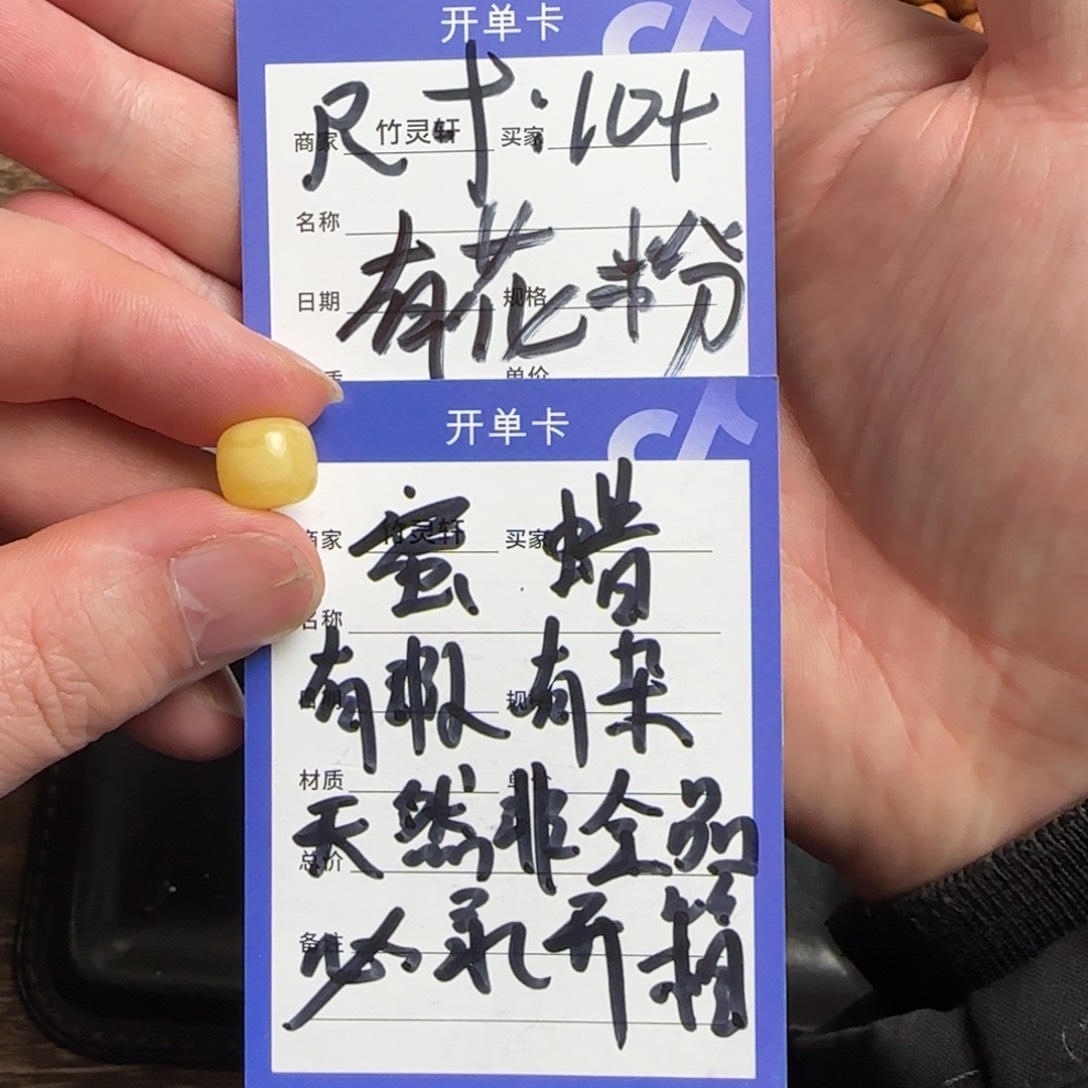 开单卡
尺寸:104
商家 竹灵轩 买家
名称
有花粉
日期 规格
单价
开单卡
蜜蜡
商家 竹灵轩 买家
名称
有瑕有杂
日期 规格
材质 单价
天然非全品
总价
必录开箱
备注